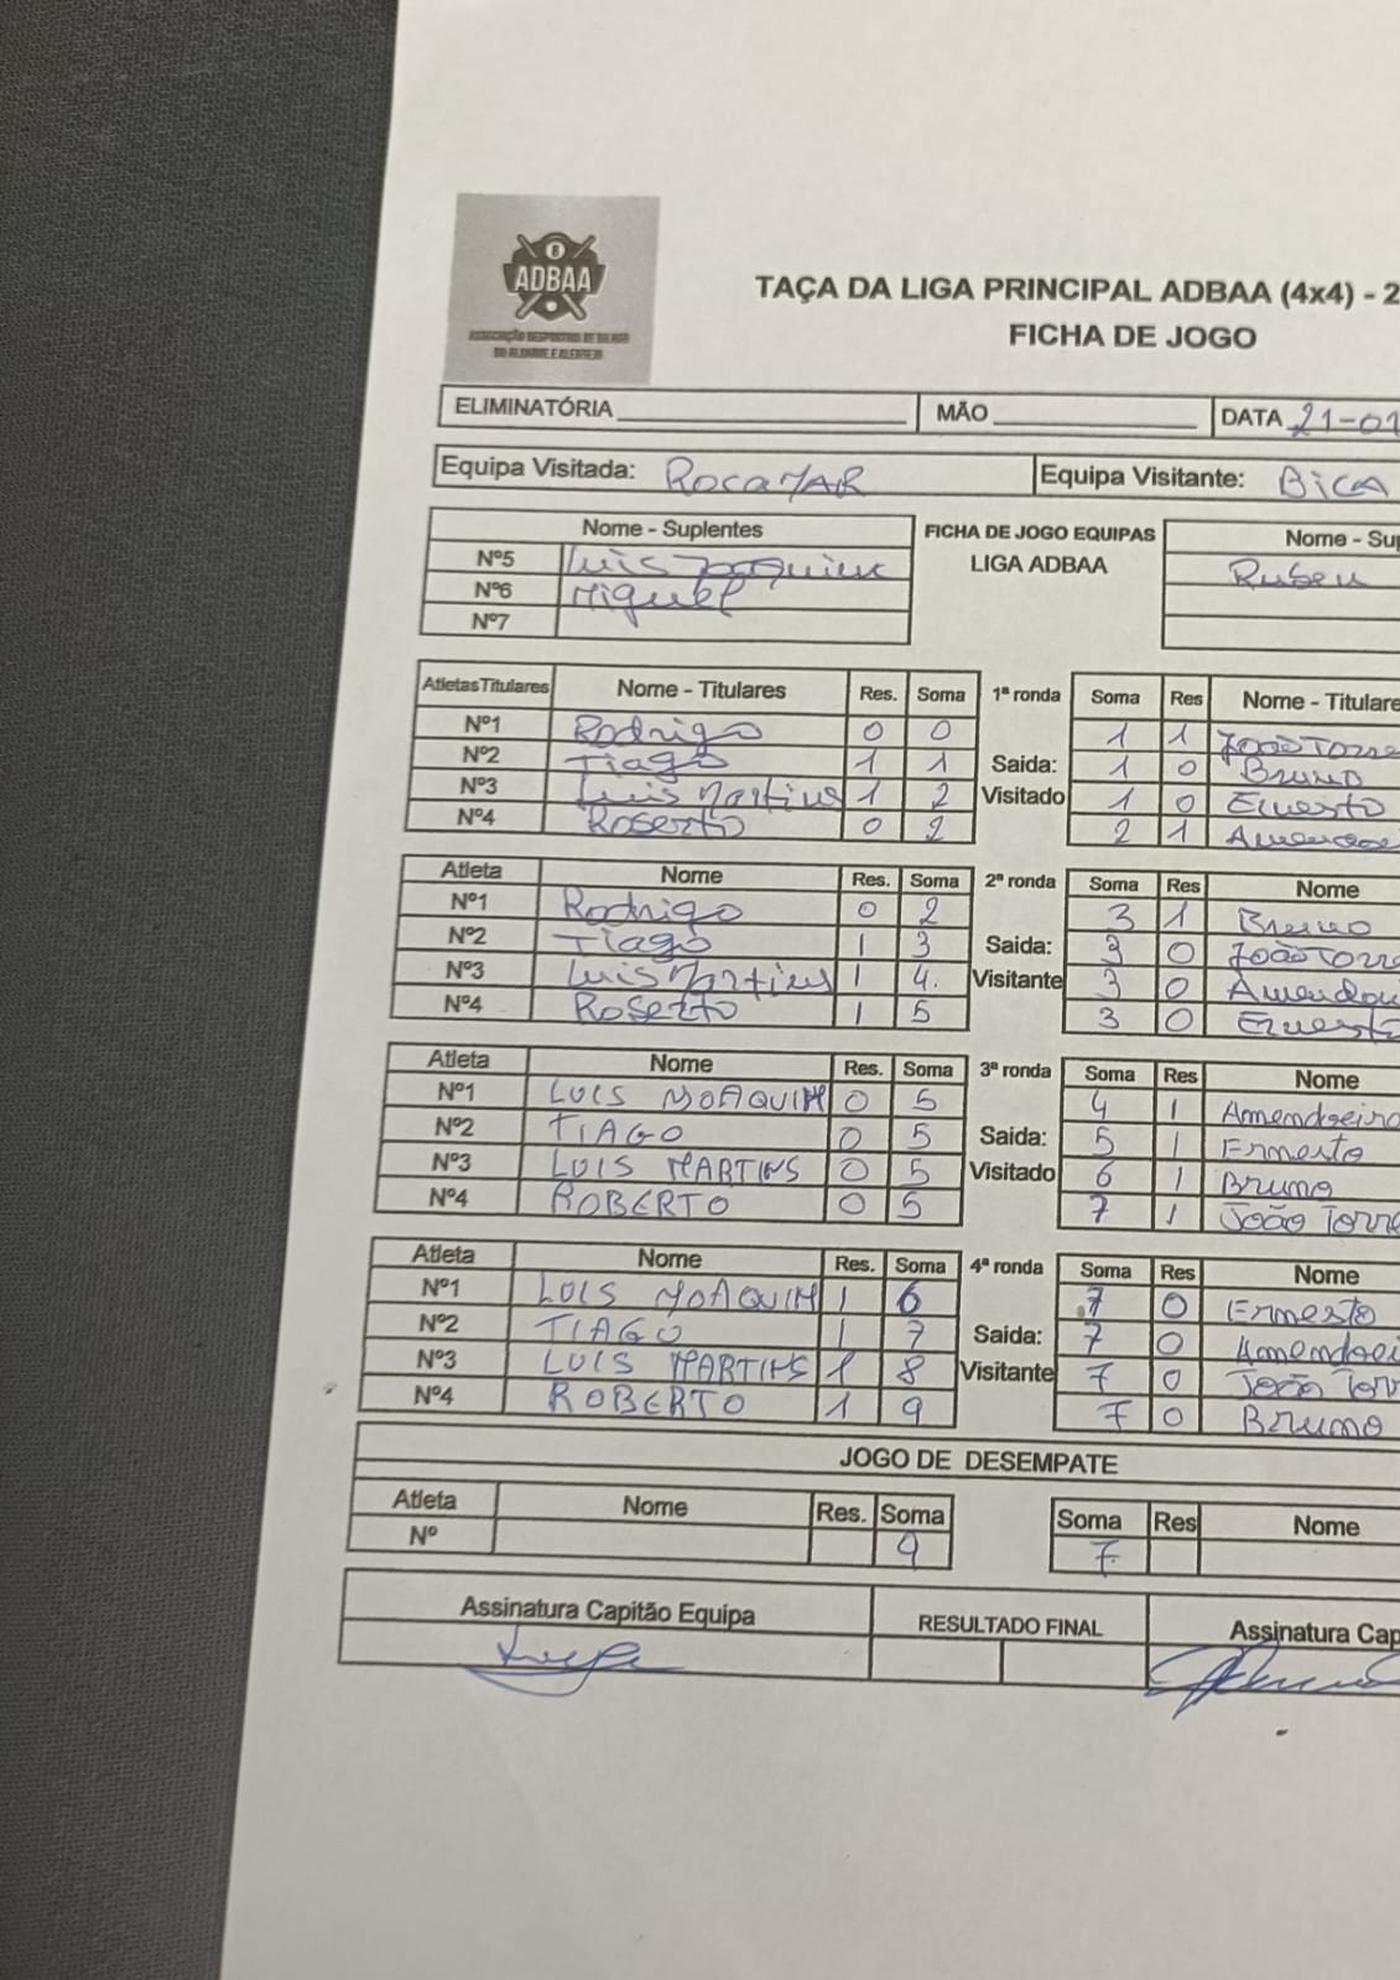 8
ADBAA
ASSOCIAÇÃO DESPORTIVA DE BILHAR
DO ALGARVE E ALENTEJO
TAÇA DA LIGA PRINCIPAL ADBAA (4x4) - 2
FICHA DE JOGO
ELIMINATÓRIA MÃO DATA 21-01
Equipa Visitada: RocaMAR Equipa Visitante: BiCA
Nome - Suplentes FICHA DE JOGO EQUIPAS Nome - Sup
Nº5 Luis Joaquim LIGA ADBAA Ruben
Nº6 Miguel
Nº7
Atletas Titulares Nome - Titulares Res. Soma 1ª ronda Soma Res Nome - Titulare
Nº1 Rodrigo 0 0 1 1 João Torre
Nº2 Tiago 1 1 Saida: 1 0 Bruno
Nº3 Luis Martins 1 2 Visitado 1 0 Ernesto
Nº4 Roberto 0 2 2 1 Amendoe
Atleta Nome Res. Soma 2ª ronda Soma Res Nome
Nº1 Rodrigo 0 2 3 1 Bruno
Nº2 Tiago 1 3 Saida: 3 0 João Torre
Nº3 Luis Martins 1 4. Visitante 3 0 Amendoei
Nº4 Roberto 1 5 3 0 Ernesto
Atleta Nome Res. Soma 3ª ronda Soma Res Nome
Nº1 LUIS JOAQUIM 0 5 4 1 Amendoeiro
Nº2 TIAGO 0 5 Saida: 5 1 Ernesto
Nº3 LUIS MARTINS 0 5 Visitado 6 1 Bruno
Nº4 ROBERTO 0 5 7 1 João Torre
Atleta Nome Res. Soma 4ª ronda Soma Res Nome
Nº1 LUIS JOAQUIM 1 6 7 0 Ernesto
Nº2 TIAGO 1 7 Saida: 7 0 Amendoei
Nº3 LUIS MARTINS 1 8 Visitante 7 0 João Torr
Nº4 ROBERTO 1 9 7 0 Bruno
JOGO DE DESEMPATE
Atleta Nome Res. Soma Soma Res Nome
Nº 9 7
Assinatura Capitão Equipa RESULTADO FINAL Assinatura Cap